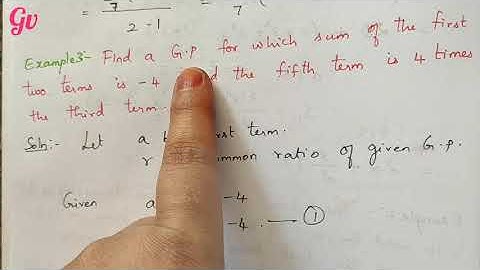 Gv
= 7 = 7
2-1
Example3:- Find a G.P for which sum of the first
two terms is -4 d the fifth term is 4 times
the third term.
Soln:- Let a b rst term.
r ommon ratio of given G.P.
Given a -4
-4. ①